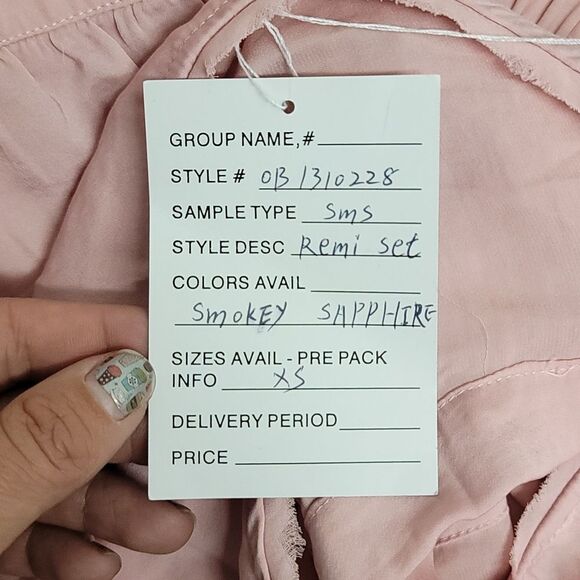 GROUP NAME,#
STYLE # OB1310228
SAMPLE TYPE SMS
STYLE DESC Remi set
COLORS AVAIL
SMOKEY SAPPHIRE
SIZES AVAIL - PRE PACK
INFO XS
DELIVERY PERIOD
PRICE